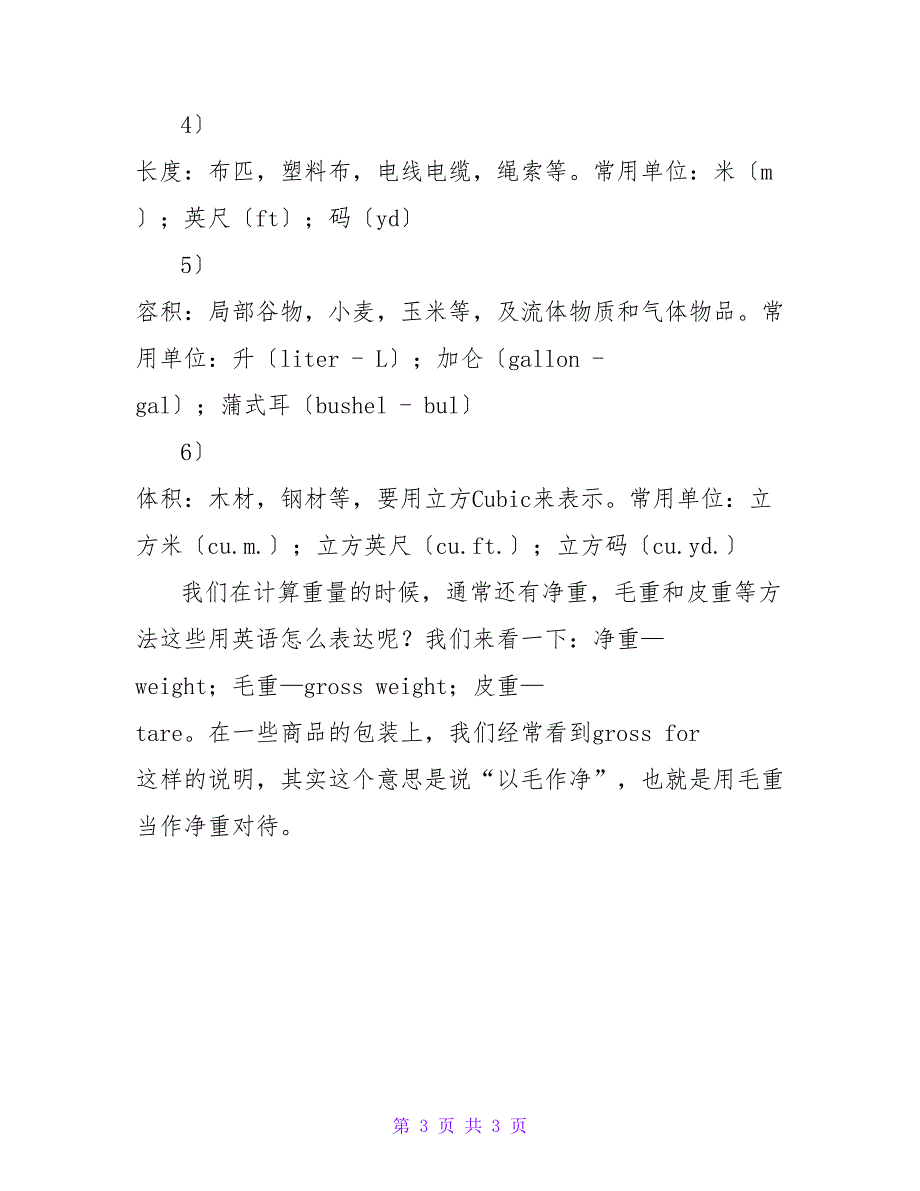 4〕
长度：布匹，塑料布，电线电缆，绳索等。常用单位：米〔m
〕；英尺〔ft〕；码〔yd〕
5〕
容积：局部谷物，小麦，玉米等，及流体物质和气体物品。常
用单位：升〔liter - L〕；加仑〔gallon -
gal〕；蒲式耳〔bushel - bul〕
6〕
体积：木材，钢材等，要用立方Cubic来表示。常用单位：立
方米〔cu.m.〕；立方英尺〔cu.ft.〕；立方码〔cu.yd.〕
我们在计算重量的时候，通常还有净重，毛重和皮重等方
法这些用英语怎么表达呢？我们来看一下：净重—
weight；毛重—gross weight；皮重—
tare。在一些商品的包装上，我们经常看到gross for
这样的说明，其实这个意思是说“以毛作净”，也就是用毛重
当作净重对待。
第 3 页 共 3 页